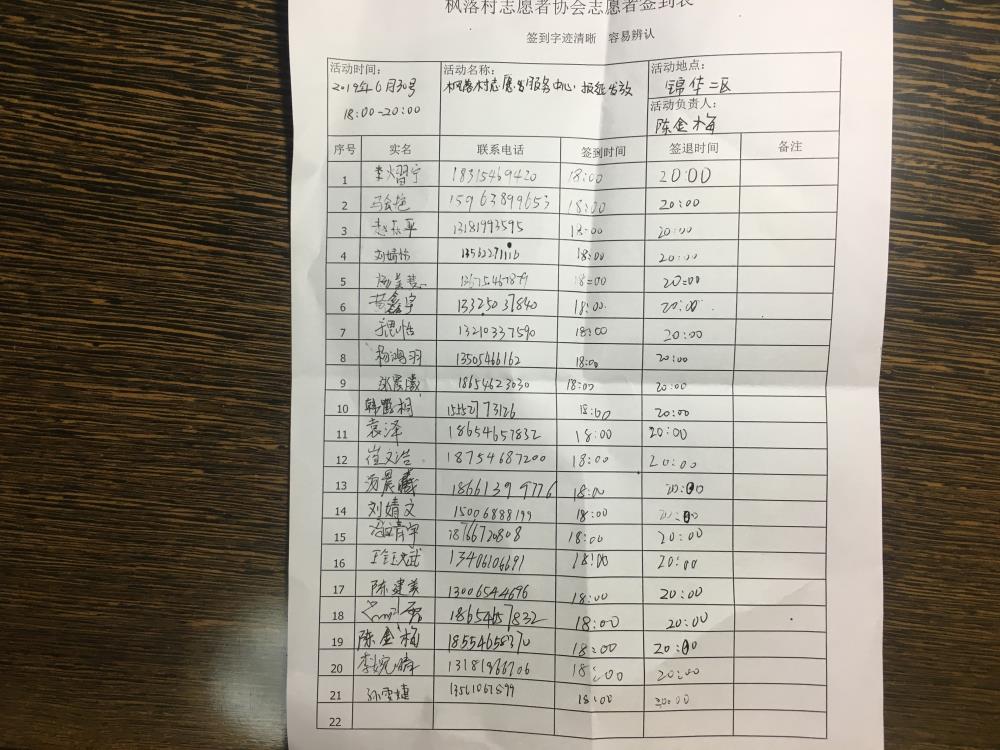 枫落村志愿者协会志愿者签到表
签到字迹清晰 容易辨认
活动时间: 活动名称: 活动地点:
2019年6月30号 枫落村志愿者服务中心·报纸发放 锦华二区
18:00-20:00 活动负责人:
陈金梅
序号 实名 联系电话 签到时间 签退时间 备注
1 李熠宁 18315469420 18:00 20:00
2 15963899653 18:00 20:00
3 赵东平 13181993595 18:00 20:00
4 刘婧怡 18:00 20:00
5 18:00 20:00
6 鑫宇 13325031840 18:00 20:00
7 13210337590 18:00 20:00
8 杨鸿羽 13505466162 18:00 20:00
9 张晨曦 18654623030 18:00 20:00
10 韩 桐 15552773126 18:00 20:00
11 袁泽 18654657832 18:00 20:00
12 崔文浩 18754687200 18:00 20:00
13 晨曦 18661399776 18:00 20:00
14 刘婧文 15006888199 18:00 20:00
15 18766720808 18:00 20:00
16 13406106691 18:00 20:00
17 陈建美 13006544696 18:00 20:00
18 18654657832 18:00 20:00
19 陈金梅 18554658370 18:00 20:00
20 李婉晴 13181966706 18:00 20:00
21 孙雪婕 18:00 20:00
22